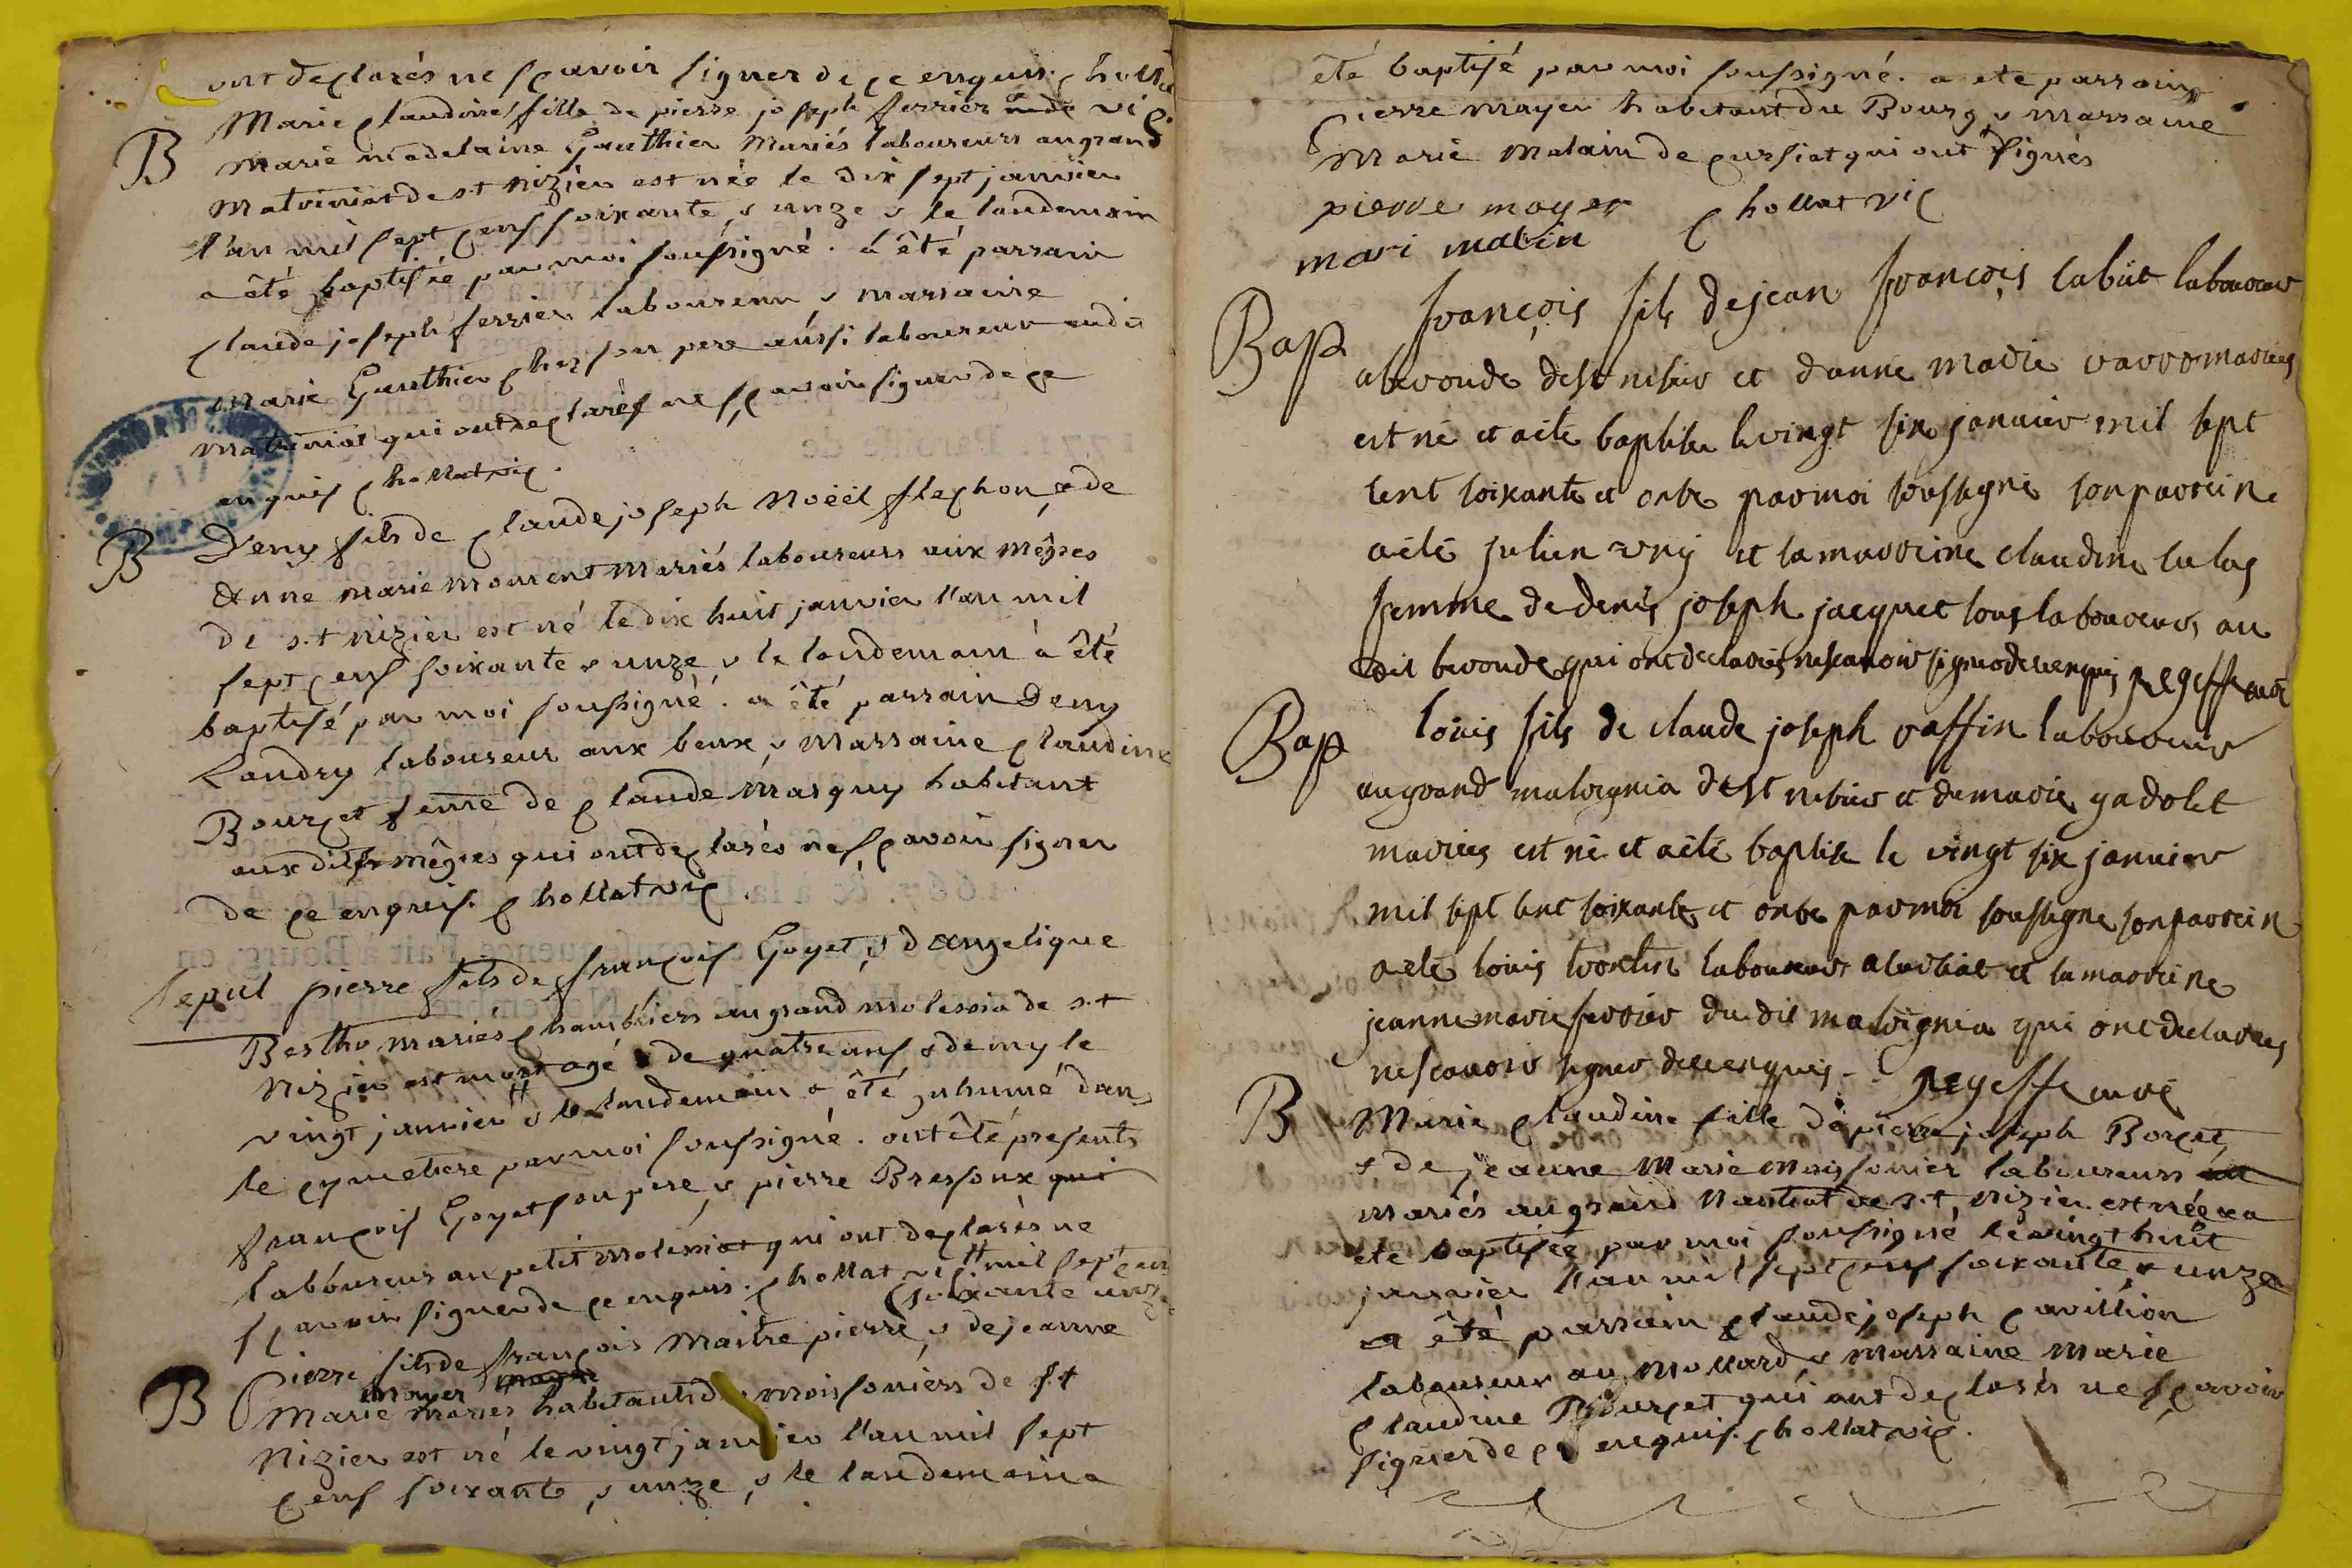 ont declarés ne scavoir signer de ce enquis. chollat
B
Marie claudine fille de pierre joseph ferrier & de vic
marie madelaine Gauthier Mariés laboureurs au grand
malviniat de st nizier est née le dix sept janvier
l'an mil sept cens soixante & unze & le landemain
a êté baptisée par moi soussigné. a êté parrain
claude joseph ferrier laboureur & marraine
marie Gauthier chez son pere aussi laboureur audit
malviniat qui ont declarés ne scavoir signer de ce
enquis chollat vic.
B
Deny fils de claude joseph Noëél flechon & de
Anne marie mourent mariés laboureurs aux mêgres
de s.t nizier est né le dix huit janvier l'an mil
sept cens soixante & unze & le landemain a êté
baptisé par moi soussigné. a êté parrain Deny
Landry laboureur aux beux & marraine claudine
Bourcet feme de claude Marguy habitant
aux dits mêgres qui ont declarés ne scavoir signer
de ce enquis. chollat vic
sepul pierre fils de francois Goyet & d'angelique
Bertho mariés chambriers au grand molessia de s.t
Nizier est mort agé de quatre ans & demy le
vingt janvier # & le landemain a êté inhumé dans
le cymetiere par moi soussigné. ont êté presents
francois Goyet son pere & pierre Bressoux qui
laboureurs au petit molessiat qui ont declarés ne
scavoir signer de ce enquis. chollat vic # mil sept cens
soixante unze
B
Pierre fils de francois Maitre pierre & de jeanne
mayer
Marie mariés habitants de moissoniers de st
Nizier est né le vingt janvier l'an mil sept
cens soixante & unze & le landemain a
êté baptisé par moi soussigné. a ete parrain
Pierre mayer habitant du Bourg & marraine
Marie Malain de cursiat qui ont signés
pierre mayer chollat vic
mari malin
Bap
francois fils de jean francois labut laboureur
a bevonde de st nisier et d'anne marie varro mariees
est né et a eté baptise le vingt six janvier mil sept
cent soixante et onze par moi soussigné son parrein
a eté julien et sa marreine claudine
femme de denis joseph jacquet tous laboureurs au
dit bevonde qui ont declarés ne scavoir signer de ce enquis
Bap
louis fils de claude joseph raffin laboureur
au grand malvignia de st nisier et de marie gadolet
mariees est né et a eté baptise le vingt six janvier
mil sept cent soixante et onze par moi soussigné son parrein
a eté louis laboureur a et sa marreine
jeanne marie ferrier du dit malvignia qui ont declarees
ne scavoir signer de ce enquis curé
B
Marie claudine fille de pierre joseph Borcet
& de jeanne Marie moissonier laboureurs
mariés au grand Nantiat de s.t nizier est née & a
été baptisée par moi soussigné le vingt huit
janvier l'an mil sept cens soixante & unze
a êté parrain claude joseph cavillion
laboureur au mollard & marraine marie
claudine Bourcet qui ont declarés ne scavoir
signer de ce enquis. chollat vic.